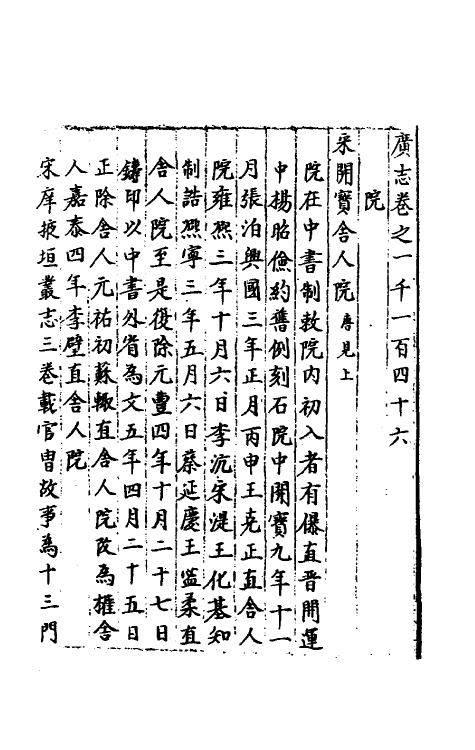 廣志卷之一千一百四十六
院
宋開寶舍人院唐見上
院在中書制敕院内初入者有儤直晉開運
中揚昭儉約舊例刻石院中開寶九年十一
月張洎興國三年正月丙申王克正直舍人
院雍熙三年十月六日李沆宋湜王化基知
制誥熙寧三年五月六日蔡延慶王益柔直
舍人院至是復除元豊四年十月二十七日
鑄印以中書外省為文五年四月二十五日
正除舍人元祐初蘇轍直舍人院改為權舍
人嘉泰四年李壁直舍人院
宋庠掖垣叢志三卷載官曹故事為十三門